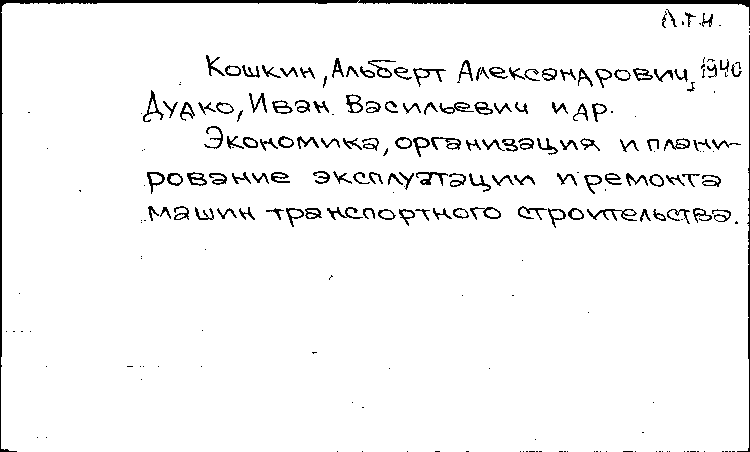 Л.Т.Н.
Кошкин, Альберт Александрович, 1940
Дудко, Иван Васильевич и др.
Экономика, организация и плани-
рование эксплуатации и ремонта
машин транспортного строительства.